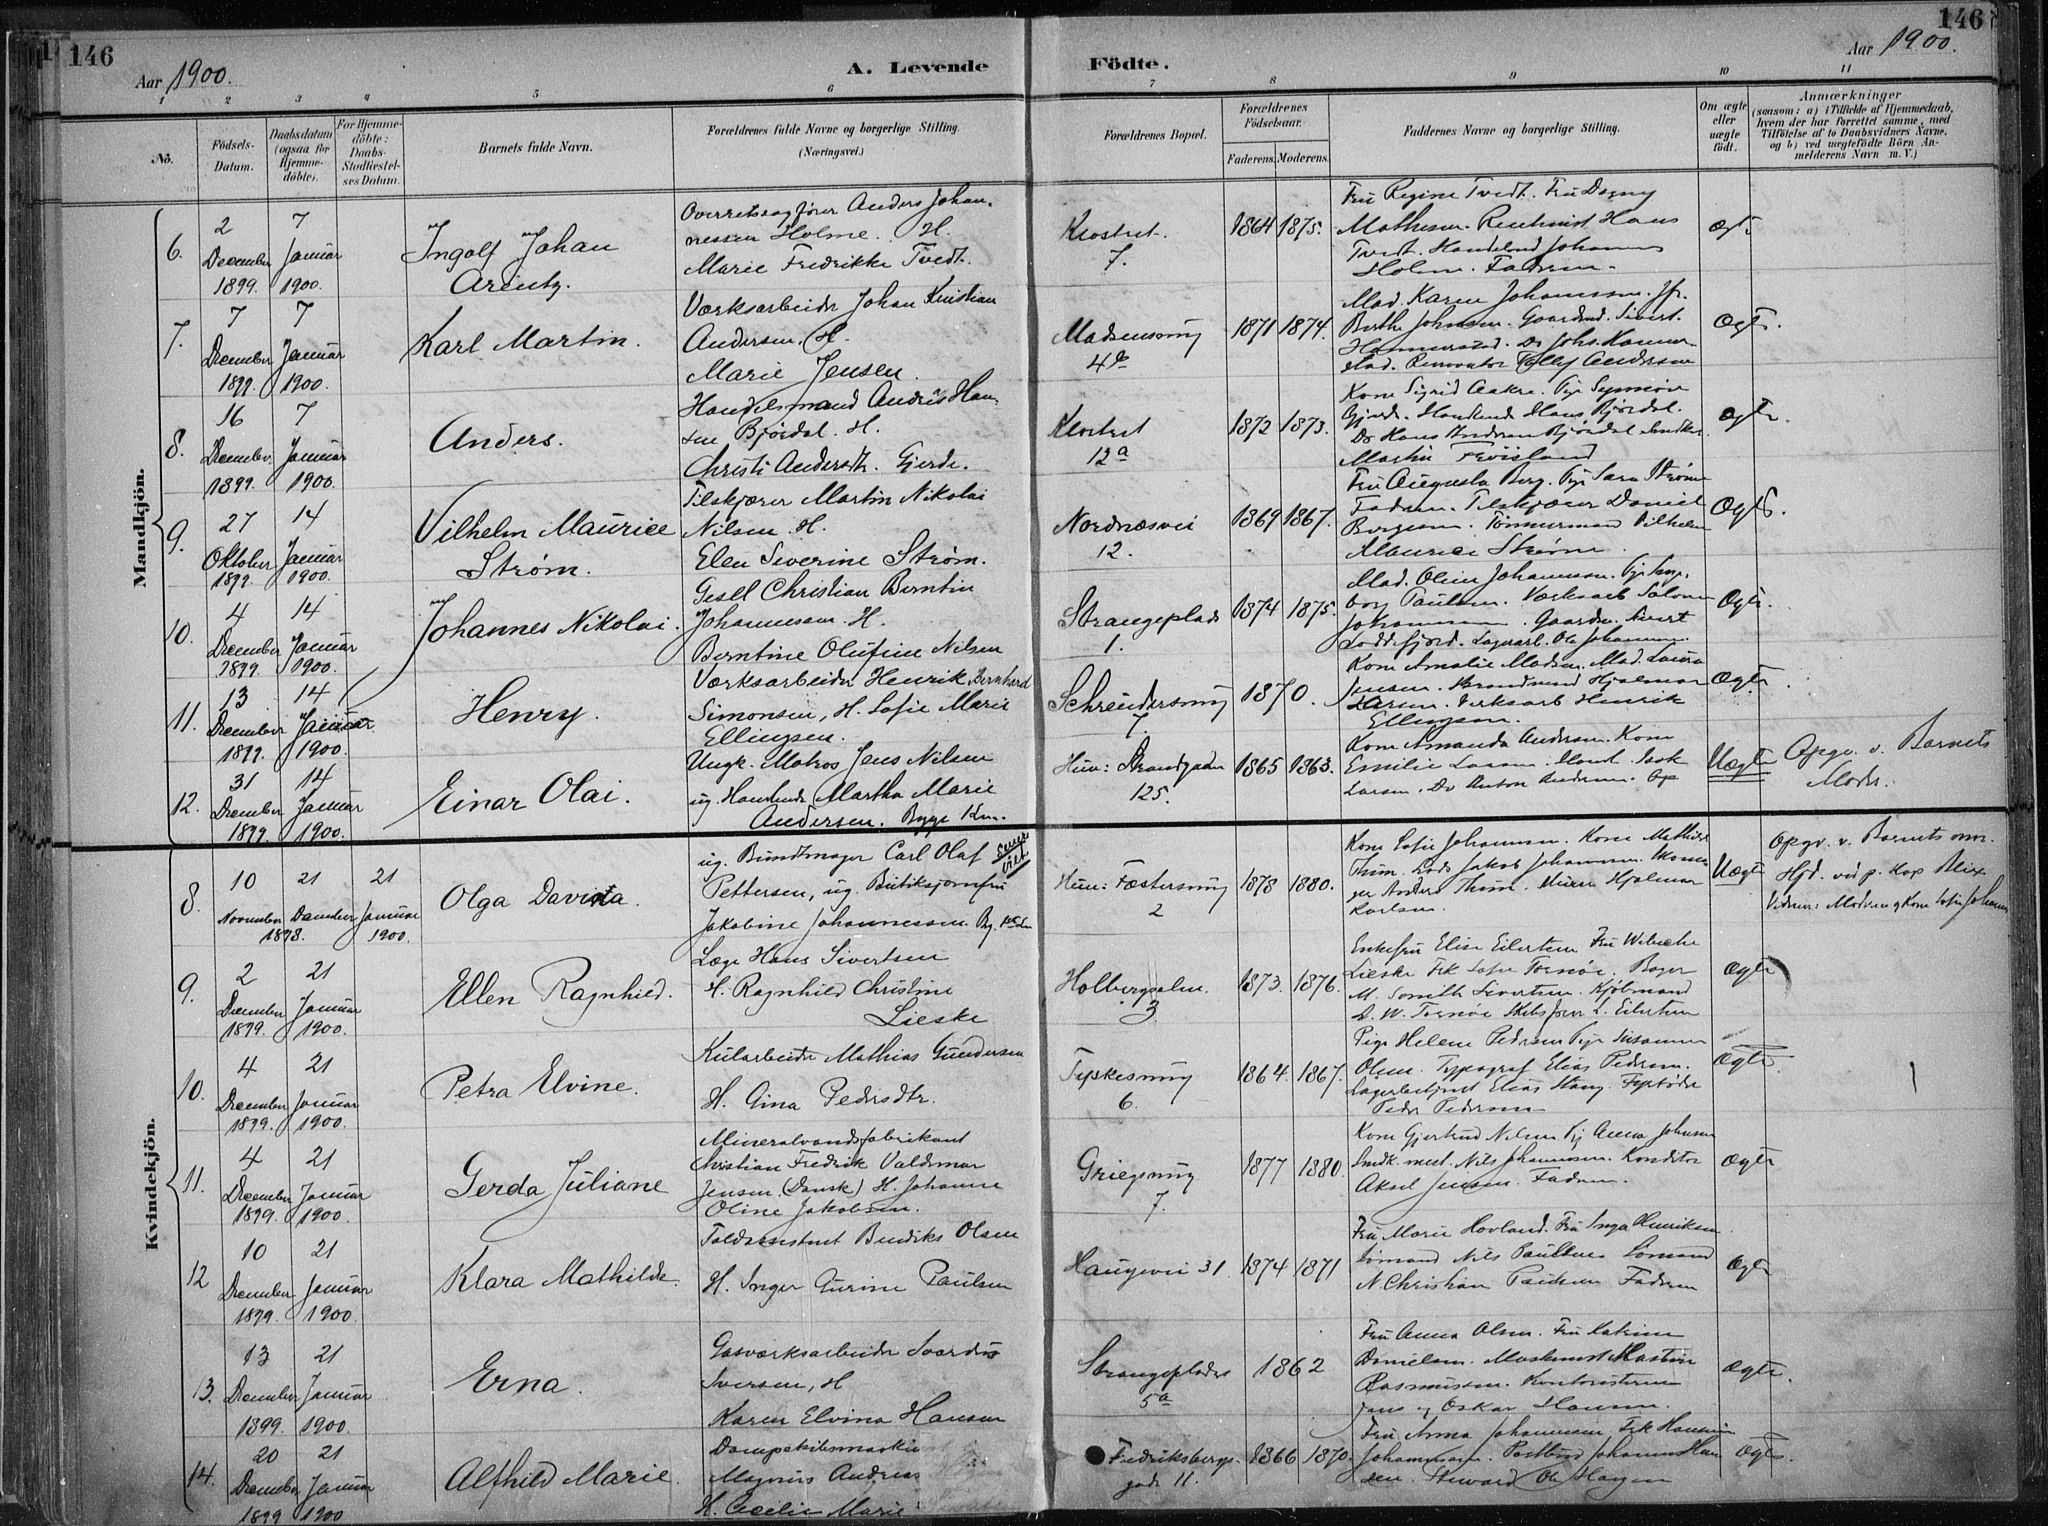 146
Aar 1900.
A. Levende
Födte.
Aar 1900.
146
1 2 3 4 5 6 7 8 9 10 11
No.
Födsels-Datum.
Daabsdatum (ogsaa for Hjemmedöbte).
For Hjemmedöbte: Daabs-Stadfæstelses Datum.
Barnets fulde Navn.
Forældrenes fulde Navne og borgerlige Stilling.
(Næringsvei.)
Forældrenes Bopæl.
Forældrenes Födselsaar.
Faderens. Moderens.
Faddernes Navne og borgerlige Stilling.
Om ægte eller uægte födt.
Anmærkninger
(saasom: a) i Tilfælde af Hjemmedaab, hvem der har forrettet samme, med Tilföielse af to Daabsvidners Navne. og b) ved uægtefödte Börn Anmelderens Navn m. V.)
Mandkjön.
6. 2 December 1899. 7 Januar 1900.
Ingolf Johan Arentz.
Overretssagfører Anders Johan-
nessen Holme. H.
Marie Fredrikke Tvedt.
Klostret. 7.
1864 1875.
Fru Regine Tvedt. Fru Dagny
Tvedt. Johannes
Fadren.
Ægt.
7. 7 December 1899. 7 Januar 1900.
Karl Martin.
Værksarbeider Johan Kristian
Andersen. H.
Marie Jensen.
Madsensmug 4b
1871 1874.
Mad. Karen Johannessen. Jfr.
Berthe Johnsen. Gaardmd. Sivert
Andersen
Ægte.
8. 16 December 1899. 7 Januar 1900.
Anders.
Handelsmand Andreas Han-
sen Bjørdal. H.
Christi Andersdtr. Gjerde.
Klostret 12a
1872 1873.
Kone Sigrid Aakre. Pige Synnøve
Gjerde. Hans Bjørdal.
Martin
Ægte.
9. 27 Oktober 1899. 14 Januar 1900.
Vilhelm Maurice Strøm.
Fiskjærer Martin Nikolai
Nilsen. H.
Elen Severine Strøm.
Nordnæsvei 12.
1869 1867.
Fru Augusta Berg. Pige Sara Strøm
Fadren. Daniel
Tømmermand Vilhelm
Maurice Strøm.
Ægte.
10. 4 December 1899. 14 Januar 1900.
Johannes Nikolai.
Gesell Christian Berntin
Johannessen H.
Berntine Olufine Nilsen
Strangeplads 1.
1874 1875.
Mad. Oline Johannessen. Pige Inge-
borg Paulsen. Værksarb Salomon
Johannessen. Gaardm. Sivert
Loddefjord. Lagerarb. Ole Johannessen.
Ægte.
11. 13 December 1899. 14 Januar 1900.
Henry.
Værksarbeider Henrik Bernhard
Simonsen, H. Sofie Marie
Ellingsen.
Schreudersmug 7.
1870.
Kone Amalie Madsen. Mad. Laura
Jensen. Brandmand Hjalmar
Larsen. Værksarb Henrik
Ellingsen.
Ægte.
12. 31 December 1899. 14 Januar 1900.
Einar Olai.
Ungk. Matros Jens Nilsen
ug. Martha Marie
Andersen. Begge 1 km.
Hun: Strandgaden 125.
1865 1863.
Kone Amanda Andersen. Kone
Emilie Larsen. Isak
Larsen. Do Anton Andersen.
Uægte
Opgv. v. Barnets
Moder.
Kvindekjön.
8. 10 November 1898. 21 December 21 Januar 1900.
Olga Davida.
ug. Bundtmager Carl Olaf
Pettersen, ug. Butiksjomfru
Jakobine Johannessen.
Senere viet
Hun: Fæstersmug 2
1878 1880.
Kone Sofie Johannessen. Kone Mathilde
Thim. Lods Jakob Johannessen. Skoma-
ger Anders Thim. Murer Hjalmar
Karlsen.
Uægte
Opgv. v. Barnets mor.
Hjd. ved p. Kap Meix
Vidner: Moderen og Kone Sofie Johann
9. 2 December 1899. 21 Januar 1900.
Ellen Ragnhild.
Læge Hans Sivertsen
H. Ragnhild Christine
Lieske
Holbergsalm. 3
1873. 1876.
Enkefru Elise Eilertsen Fru Wibecke
Lieske Frk Sofie Tornøe. Bager
M. Smith Sivertsen. Kjøbmand
D. W. Tornøe Skibsfører L. Eilertsen
Ægte
10. 4 December 1899. 21 Januar 1900.
Petra Elvine.
Kularbeider Mathias Gundersen
H. Gina Pedersdtr.
Tydskesmug 6.
1864. 1867.
Pige Helene Pedersen Pige Susanne
Olsen. Typograf Elias Pedersen.
Lagerbetjent Elias Stang. Fyrbøder
Peder Pedersen
Ægte.
11. 4 December 1899. 21 Januar 1900.
Gerda Juliane
Mineralvandsfabrikant
Christian Fredrik Valdemar
Jensen. (Dansk) H. Johanne
Oline Jakobsen.
Griegsmug 7.
1877 1880
Kone Gjertrud Nilsen Pg Anna Johnsen
Snedk. mest. Nils Johannessen. Konditor
Aksel Jensen. Fadren.
Ægte
12 10 December 1899. 21 Januar 1900.
Klara Mathilde.
Toldassistent Bendiks Olsen
H. Inger Gurine Paulsen
Haugevei 31
1874 1871
Fru Marie Hovland. Fru Inga Henriksen
Sømand Nils Paulsen Sømand
N Christian Paulsen Fadren
Ægte
13. 13 December 1899. 21 Januar 1900.
Erna.
Gasværksarbeider Sverdrus
Iversen, H
Karen Elvina Hansen
Strangepladsen 5a
1862
Fru Anna Olsen. Fru Katrine
Danielsen. Maskinist Martin
Rasmussen. Kontoristerne
Jens og Oskar Hansen.
Ægte.
14. 20 December 1899 21 Januar 1900
Alfhild Marie.
Dampskibsmaskin
Magnus Andreas
H. Cecilie Marie
Fredriksbergs-
gade 11.
1866 1870.
Fru Anna Johannessen Frk Hansine
Johannessen. Postbud Johannes Han-
sen. Steward Ole Hagen
Ægte.